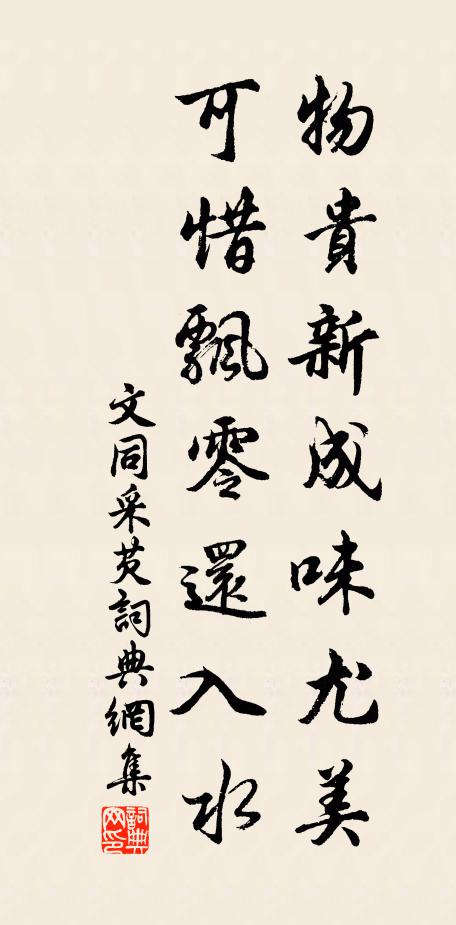 物貴新成味尤美
可惜飄零還入水
文同采芡詞典網集
詞典
网印